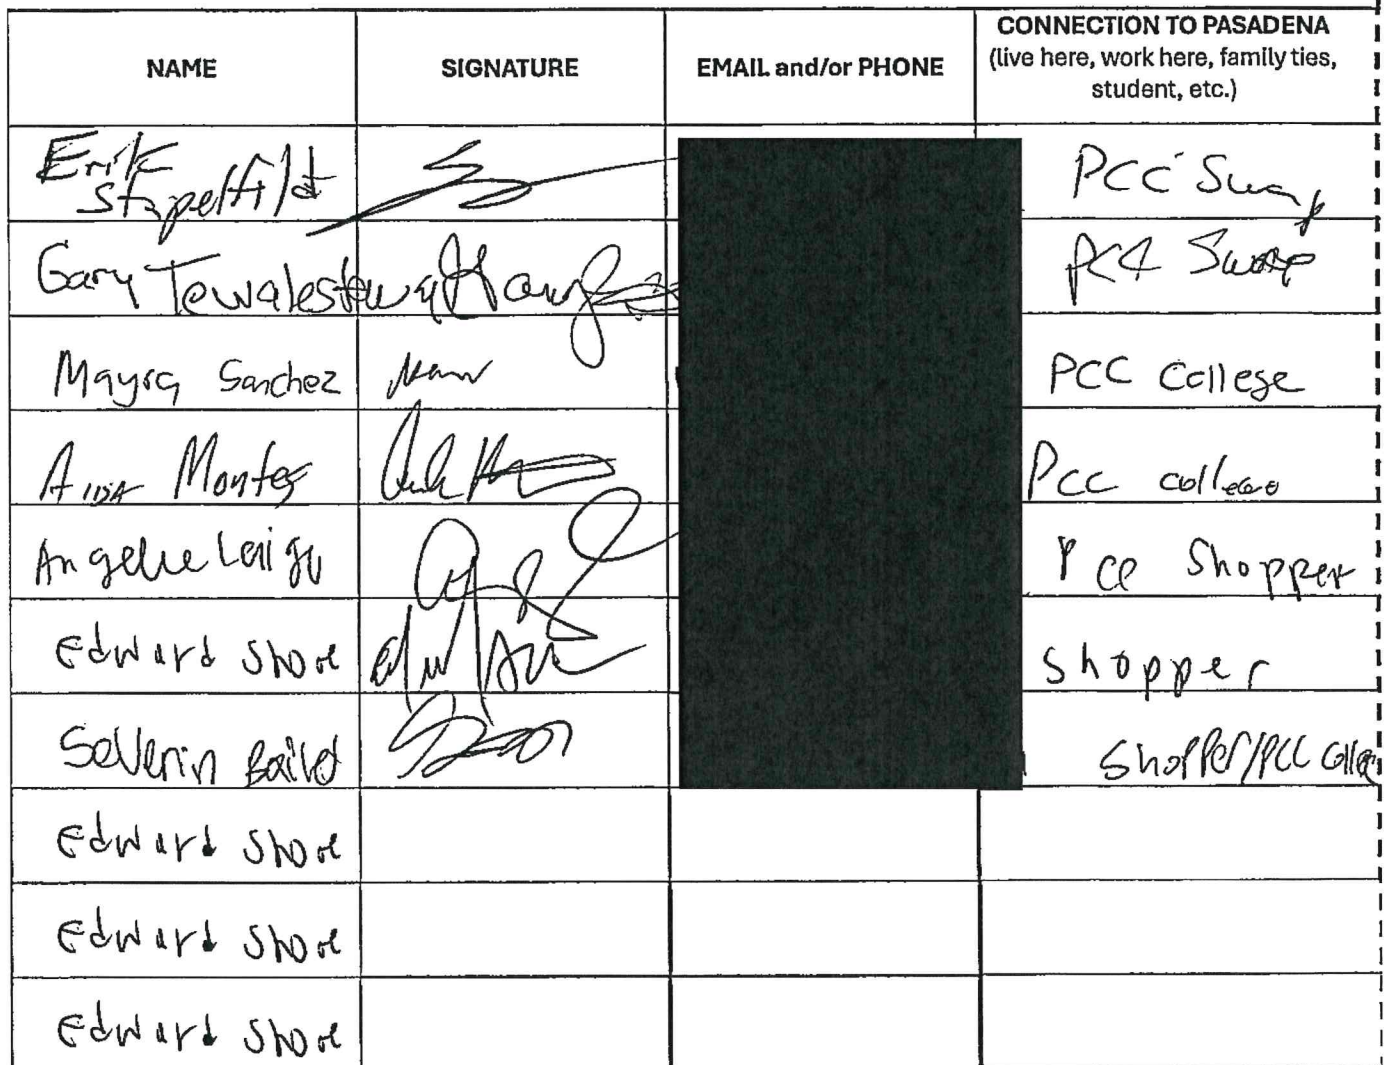 NAME
SIGNATURE
EMAIL and/or PHONE
CONNECTION TO PASADENA
(live here, work here, family ties,
student, etc.)
Erik
Stapelfild
PCC Swap
Gary Tewalestewa
PCC Swap
Mayra Sanchez
PCC College
Aida Montes
PCC college
Angelie
PCC Shopper
Edward Shoe
Shopper
Severin Baird
Shopper/PCC College
Edward Shoe
Edward Shoe
Edward Shoe